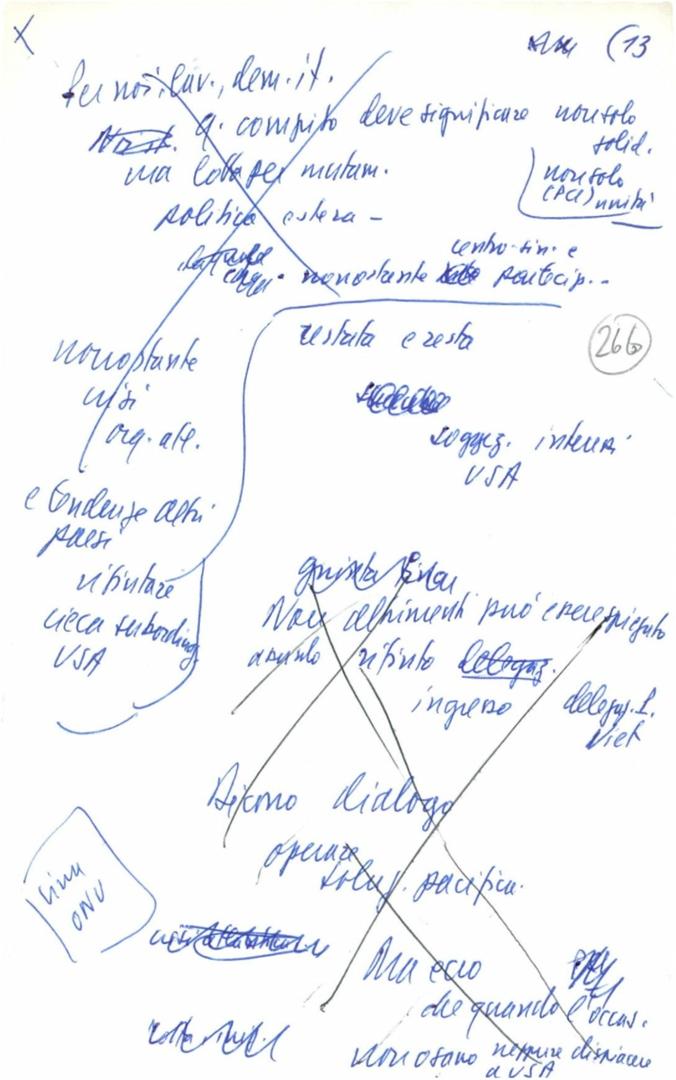 X
(13
Per noi, lav., dem. it.
q. compito deve significare non solo
solid.
ma lotta per mutam.
non solo
(PCI) unità
politica estera –
centro-sin. e
nonostante partecip. –
restata e resta
266
nonostante
crisi
org. atl.
soggez. interessi
USA
e tendenze altri
paesi
rifiutare
cieca subordinaz.
USA
Non altrimenti può essere spiegato
assurdo rifiuto delegaz.
ingresso delegaz. F.
Viet
Dicono dialogo
operare
soluz. pacifica.
Cina
ONU
Ma ecco
che quando l'occas.
non osano neppure dispiacere
a USA